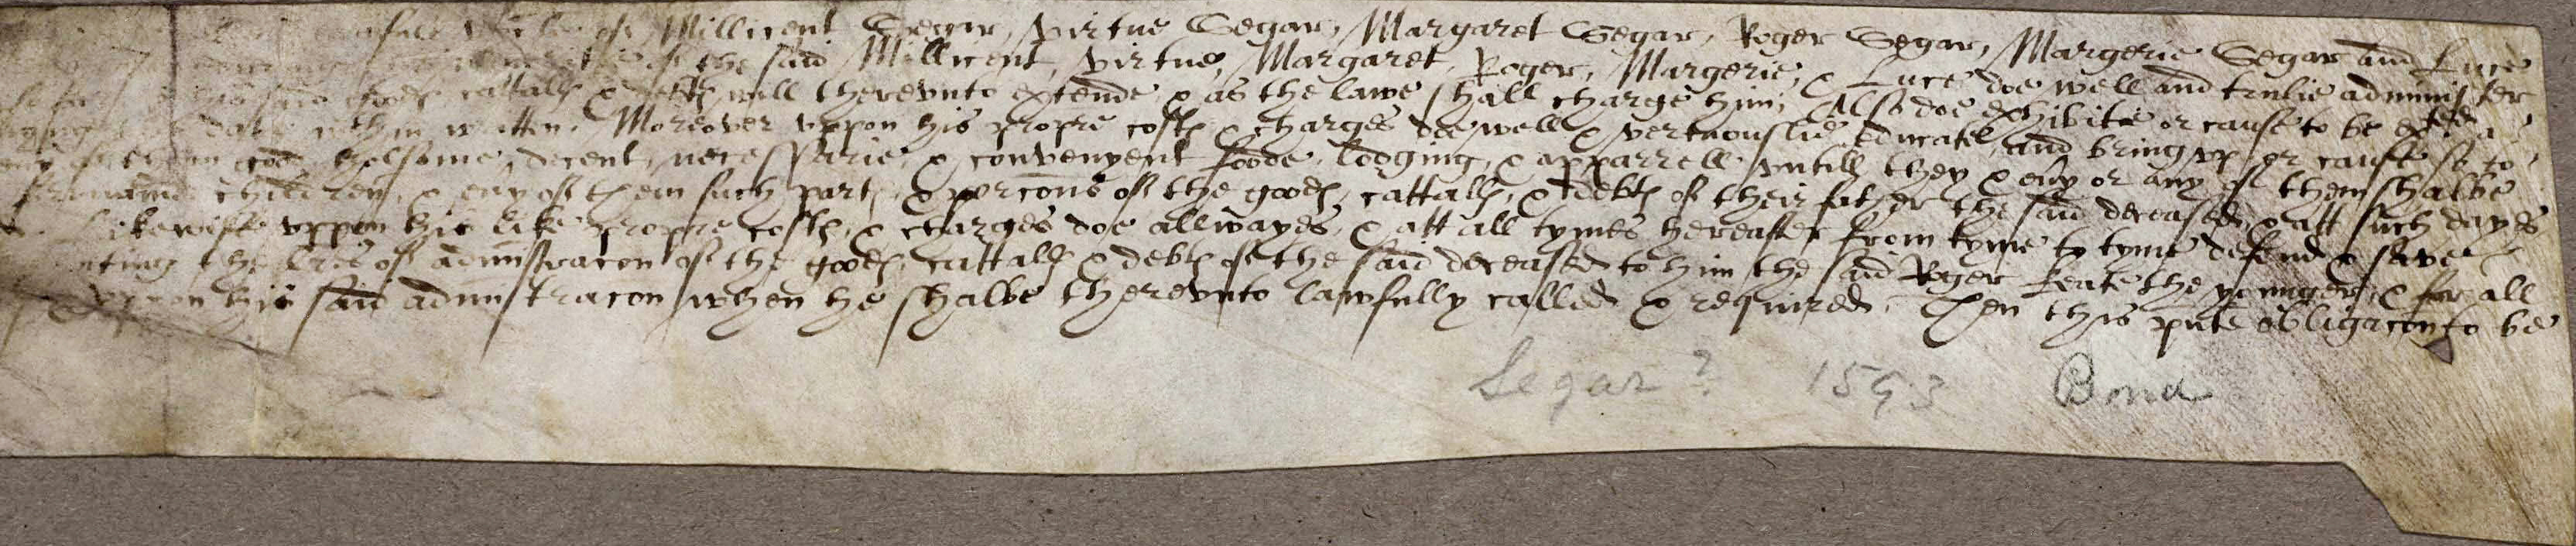 of Millicent Segar, Virtue Segar, Margaret Segar, Roger Segar, Margerie Segar and Luce
of the said Millicent, Virtue, Margaret, Roger, Margerie, & Luce doe well and trulie administer
said goods cattalls & debts will therevnto extende & as the lawe shall charge him, Also doe exhibite or cause to be
date within written. Moreover vppon his propre costs & charges doe well & vertuouslie educate, and bring vp, or cause so to
holsome, decent, necessarie, & convenyent foode, lodging, & apparrell vntill they & eny or any of them shalbe
children, & eny of them such parts & porcons of the goods, cattalls, & debts of their father the said deceased, & att such dayes
likewise vppon his like propre costs, & charges doe allwayes, & att all tymes hereafter from tyme to tyme defend & save
the lres of administracon of the goods, cattalls & debts of the said deceased to him the said Roger the younger, & for all
vppon his said administracon when he shalbe therevnto lawfully called & required, Then this pnte obligacon to be
Segar? 1593 Bond